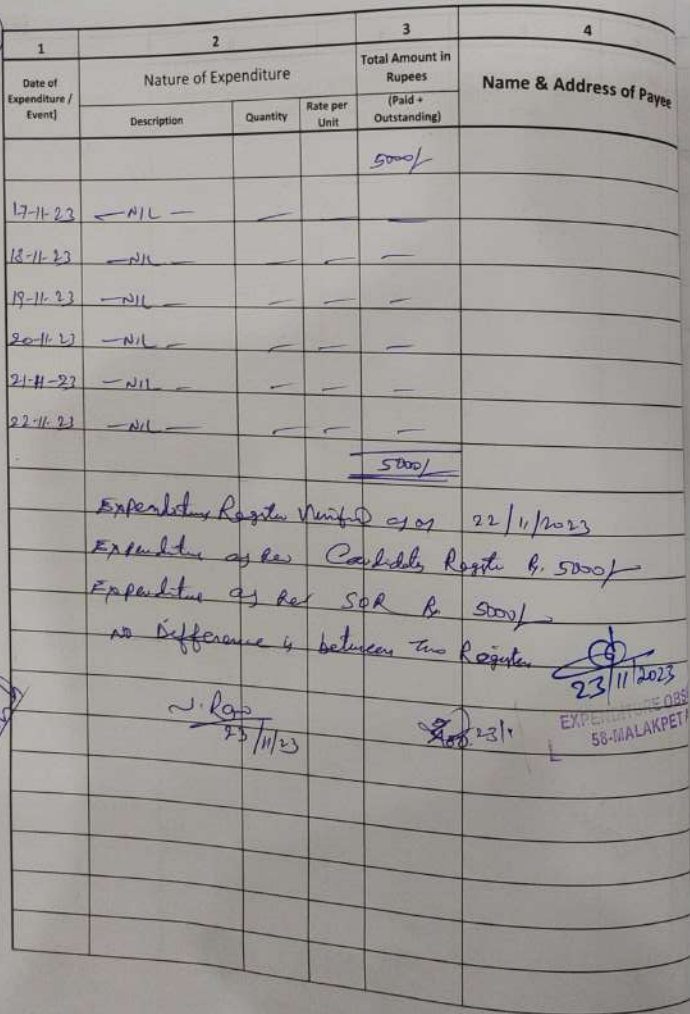 1 2 3 4
Date of Expenditure / Event] Nature of Expenditure Total Amount in Rupees (Paid + Outstanding) Name & Address of Payee
Description Quantity Rate per Unit
5000/-
17-11-23 — NIL — — —
18-11-23 — NIL — — — —
19-11-23 — NIL — — — —
20-11-23 — NIL — — — —
21-11-23 — NIL — — — —
22-11-23 — NIL — — — —
5000/-
Expenditure Register Verified as on 22/11/2023
Expenditure as per Candidates Register Rs. 5000/-
Expenditure as per SOR Rs 5000/-
No Difference is between Two Registers
23/11/2023
23/11/23
23/1
EXPENDITURE OBS
58-MALAKPET